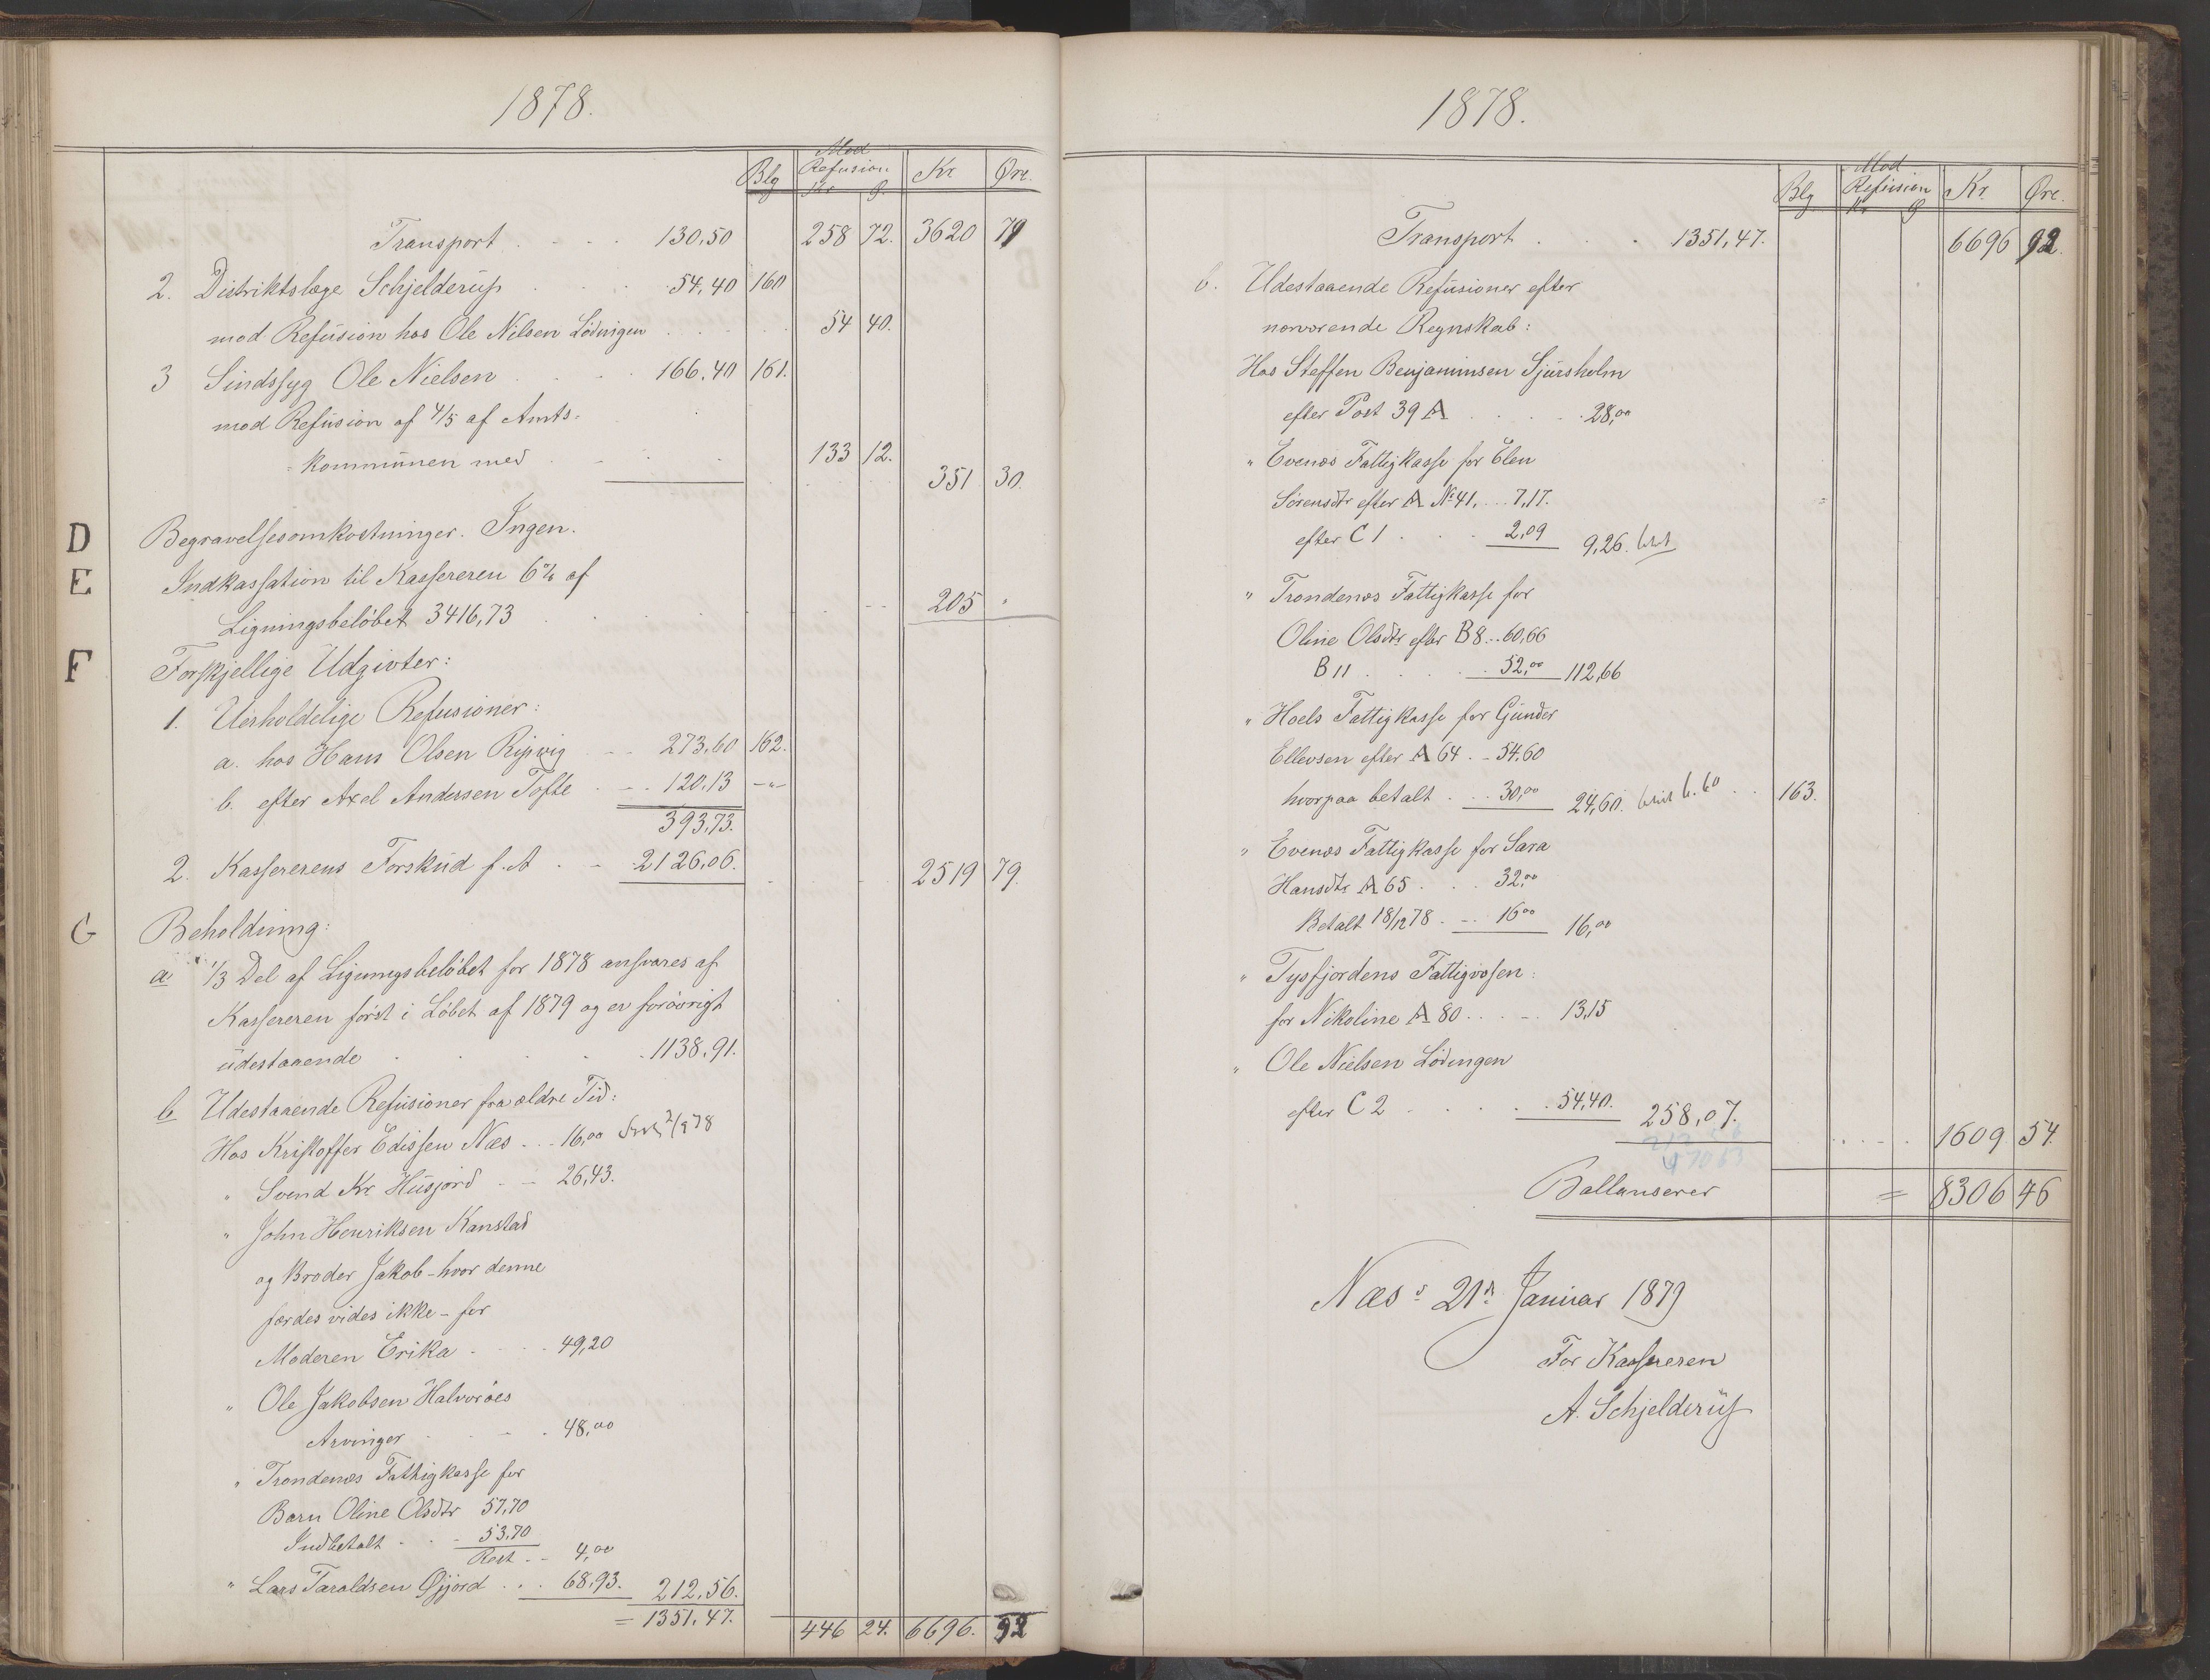 1878.
Blg Mod Refusion Kr Ø. Kr Øre.
Transport 130,50 258 72. 3620 79
2. Distriktslæge Schjelderup 54,40 160
mod Refusion hos Ole Nilsen Lödingen 54 40.
3 Sindssyg Ole Nielsen 166,40 161.
mod Refusion af 4/5 af Amts-
-kommunen med 133 12.
351 30.
D Begravelsesomkostninger. Ingen.
E Indkassation til Kassereren 6% af
Ligningsbelöbet 3416,73 205 "
F Forskjellige Udgivter:
1. Uerholdelige Refusioner:
a. hos Hans Olsen Rijpvig 273,60 162.
b. efter Axel Andersen Tofte 120,13 —"—
393,73.
2. Kassererens Forskud f. A 2126,06. 2519 79.
G Beholdning:
a 1/3 Del af Ligningsbelöbet for 1878 ansvares af
Kassereren först i Löbet af 1879 og er forövrigt
udestaaende 1138,91.
b Udestaaende Refusioner fra ældre Tid:
Hos Kristoffer Edissen Næs 16,00
" Svend Kr Husjord 26,43.
" John Henriksen Kanstad
og Broder Jakob - hvor denne
færdes vides ikke - for
Moderen Erika 49,20
" Ole Jakobsen Halvoröes
Arvinger 48,00
" Trondenæs Fattigkasse for
Barn Oline Olsdtr 57,70
Indbetalt 53,70
Rest 4,00
" Lars Taraldsen Öjjord 68,93. 212,56.
= 1351,47. 446 24. 6696. 92
1878.
Blg Mod Refusion Kr Ø Kr. Øre.
Transport 1351,47. 6696 92.
b. Udestaaende Refusioner efter
nærværende Regnskab:
Hos Steffen Benjaminsen Sjursholm
efter Post 39 A 28,00
" Evenæs Fattigkasse for Elen
Sörensdtr efter A No 41, 7,17.
efter C 1 2,09 9,26.
" Trondenæs Fattigkasse for
Oline Olsdtr efter B 8 60,66
B 11 52,00 112,66
" Hoels Fattigkasse for Gunder
Ellevsen efter A 64 54,60
hvorpaa betalt 30,00 24,60. 163.
" Evenæs Fattigkasse for Sara
Hansdtr A 65 32,00
Betalt 18/12 78 16,00 16,00
" Tysfjordens Fattigvæsen:
for Nikoline A 80 13,15
" Ole Nielsen Lödingen
efter C 2 54,40. 258,07.
1609 54.
Ballanserer = 8306 46
Næs d. 21de Januar 1879
For Kassereren
A. Schjelderup